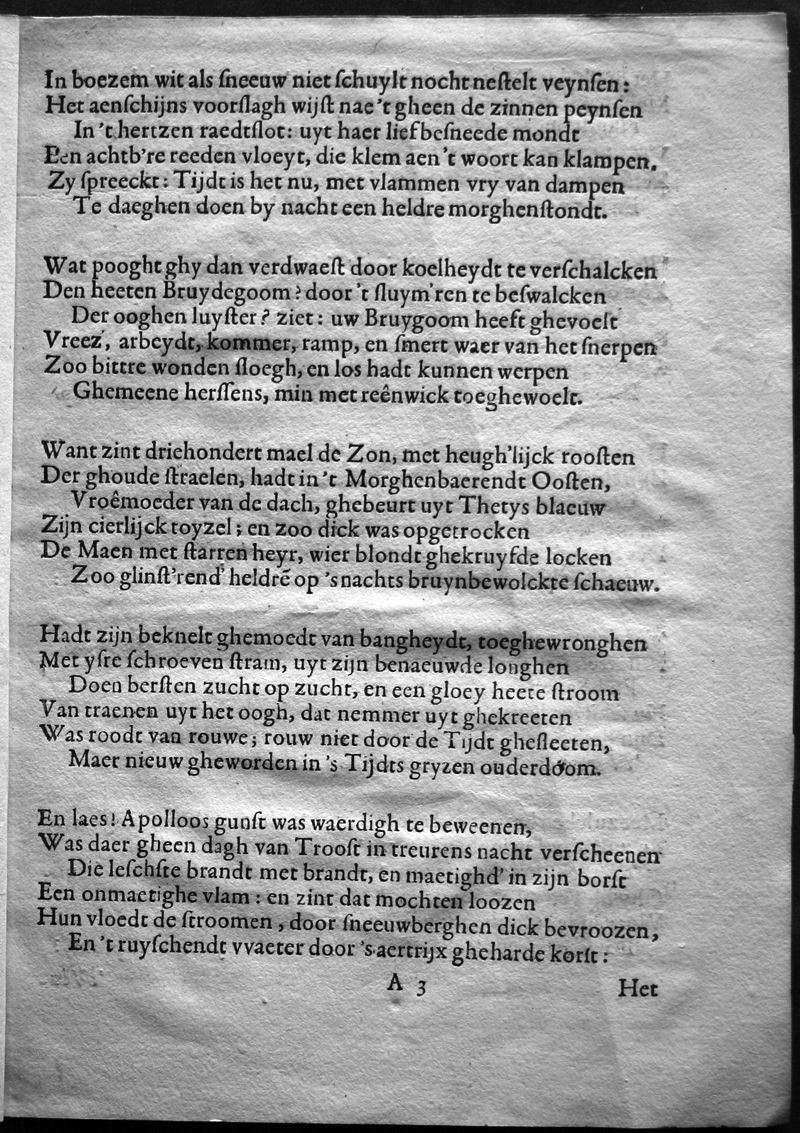 In boezem wit als ſneeuw niet ſchuylt nocht neſtelt veynſen:
Het aenſchijns voorſlagh wijſt nae 't gheen de zinnen peynſen
In 't hertzen raedtſlot: uyt haer liefbeſneede mondt
Een achtb're reeden vloeyt, die klem aen 't woort kan klampen.
Zy ſpreeckt: Tijdt is het nu, met vlammen vry van dampen
Te daeghen doen by nacht een heldre morghenſtondt.
Wat pooght ghy dan verdwaeſt door koelheydt te verſchalcken
Den heeten Bruydegoom? door 't ſluym'ren te beſwalcken
Der ooghen luyſter? ziet: uw Bruygoom heeft ghevoelt
Vreez', arbeydt, kommer, ramp, en ſmert waer van het ſnerpen
Zoo bittre wonden ſloegh, en los hadt kunnen werpen
Ghemeene herſſens, min met reênwick toeghewoelt.
Want zint driehondert mael de Zon, met heugh'lijck rooſten
Der ghoude ſtraelen, hadt in 't Morghenbaerendt Ooſten,
Vroêmoeder van de dach, ghebeurt uyt Thetys blaeuw
Zijn cierlijck toyzel; en zoo dick was opgetrocken
De Maen met ſtarren heyr, wier blondt ghekruyfde locken
Zoo glinſt'rend' heldrē op 's nachts bruynbewolckte ſchaeuw.
Hadt zijn beknelt ghemoedt van bangheydt, toeghewronghen
Met yſre ſchroeven ſtram, uyt zijn benaeuwde longhen
Doen berſten zucht op zucht, en een gloey heete ſtroom
Van traenen uyt het oogh, dat nemmer uyt ghekreeten
Was roodt van rouwe; rouw niet door de Tijdt gheſleeten,
Maer nieuw gheworden in 's Tijdts gryzen ouderdoom.
En laes! Apolloos gunſt was waerdigh te beweenen,
Was daer gheen dagh van Trooſt in treurens nacht verſcheenen
Die leſchſte brandt met brandt, en maetighd' in zijn borſt
Een onmaetighe vlam: en zint dat mochten loozen
Hun vloedt de ſtroomen, door ſneeuwberghen dick bevroozen,
En 't ruyſchendt vvaeter door 's aertrijx gheharde korſt:
A 3 Het